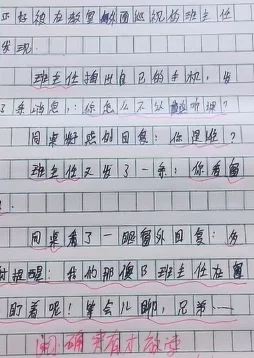 正好被在教室外面巡视的班主任
发现.
班主任掏出自己的手机,发
了条消息:你怎么不好好听课?
同桌好恐的回复:你是谁?
班主任又发了一条:你看窗
.
同桌看了一眼窗外回复:多
谢提醒:我的那傻B班主任在窗
盯着呢!等会儿聊,兄弟……